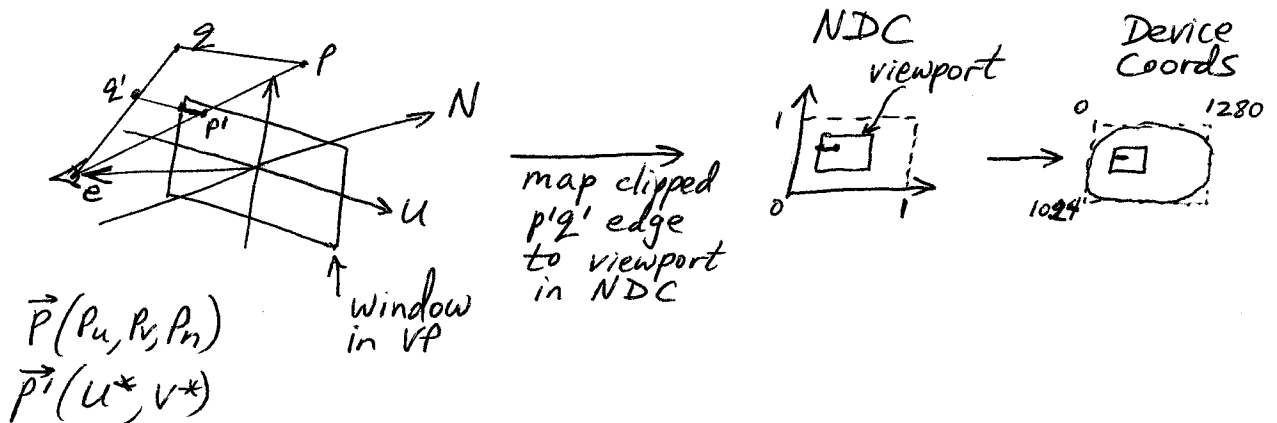 q
p
q'
p'
N
e
u
window
in VP
P⃗(Pu, Pv, Pn)
P⃗'(u*, v*)
map clipped
p'q' edge
to viewport
in NDC
NDC
viewport
1
0
1
Device
Coords
0
1280
1024